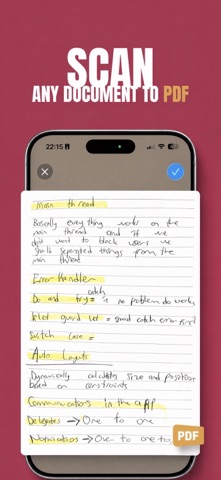 SCAN
ANY DOCUMENT TO PDF
22:15
Main thread
Basically everything works on the
main thread and if we
don't want to block users we
should separated things from the
main thread
Error Handler
Do and try = catch is no problem do works
let guard let = guard catch error first
Switch case =
Auto Layouts
Dynamically calculates size and position
based on constraints
Communications in the app
Delegates → One to one
Notifications → One to one to
PDF